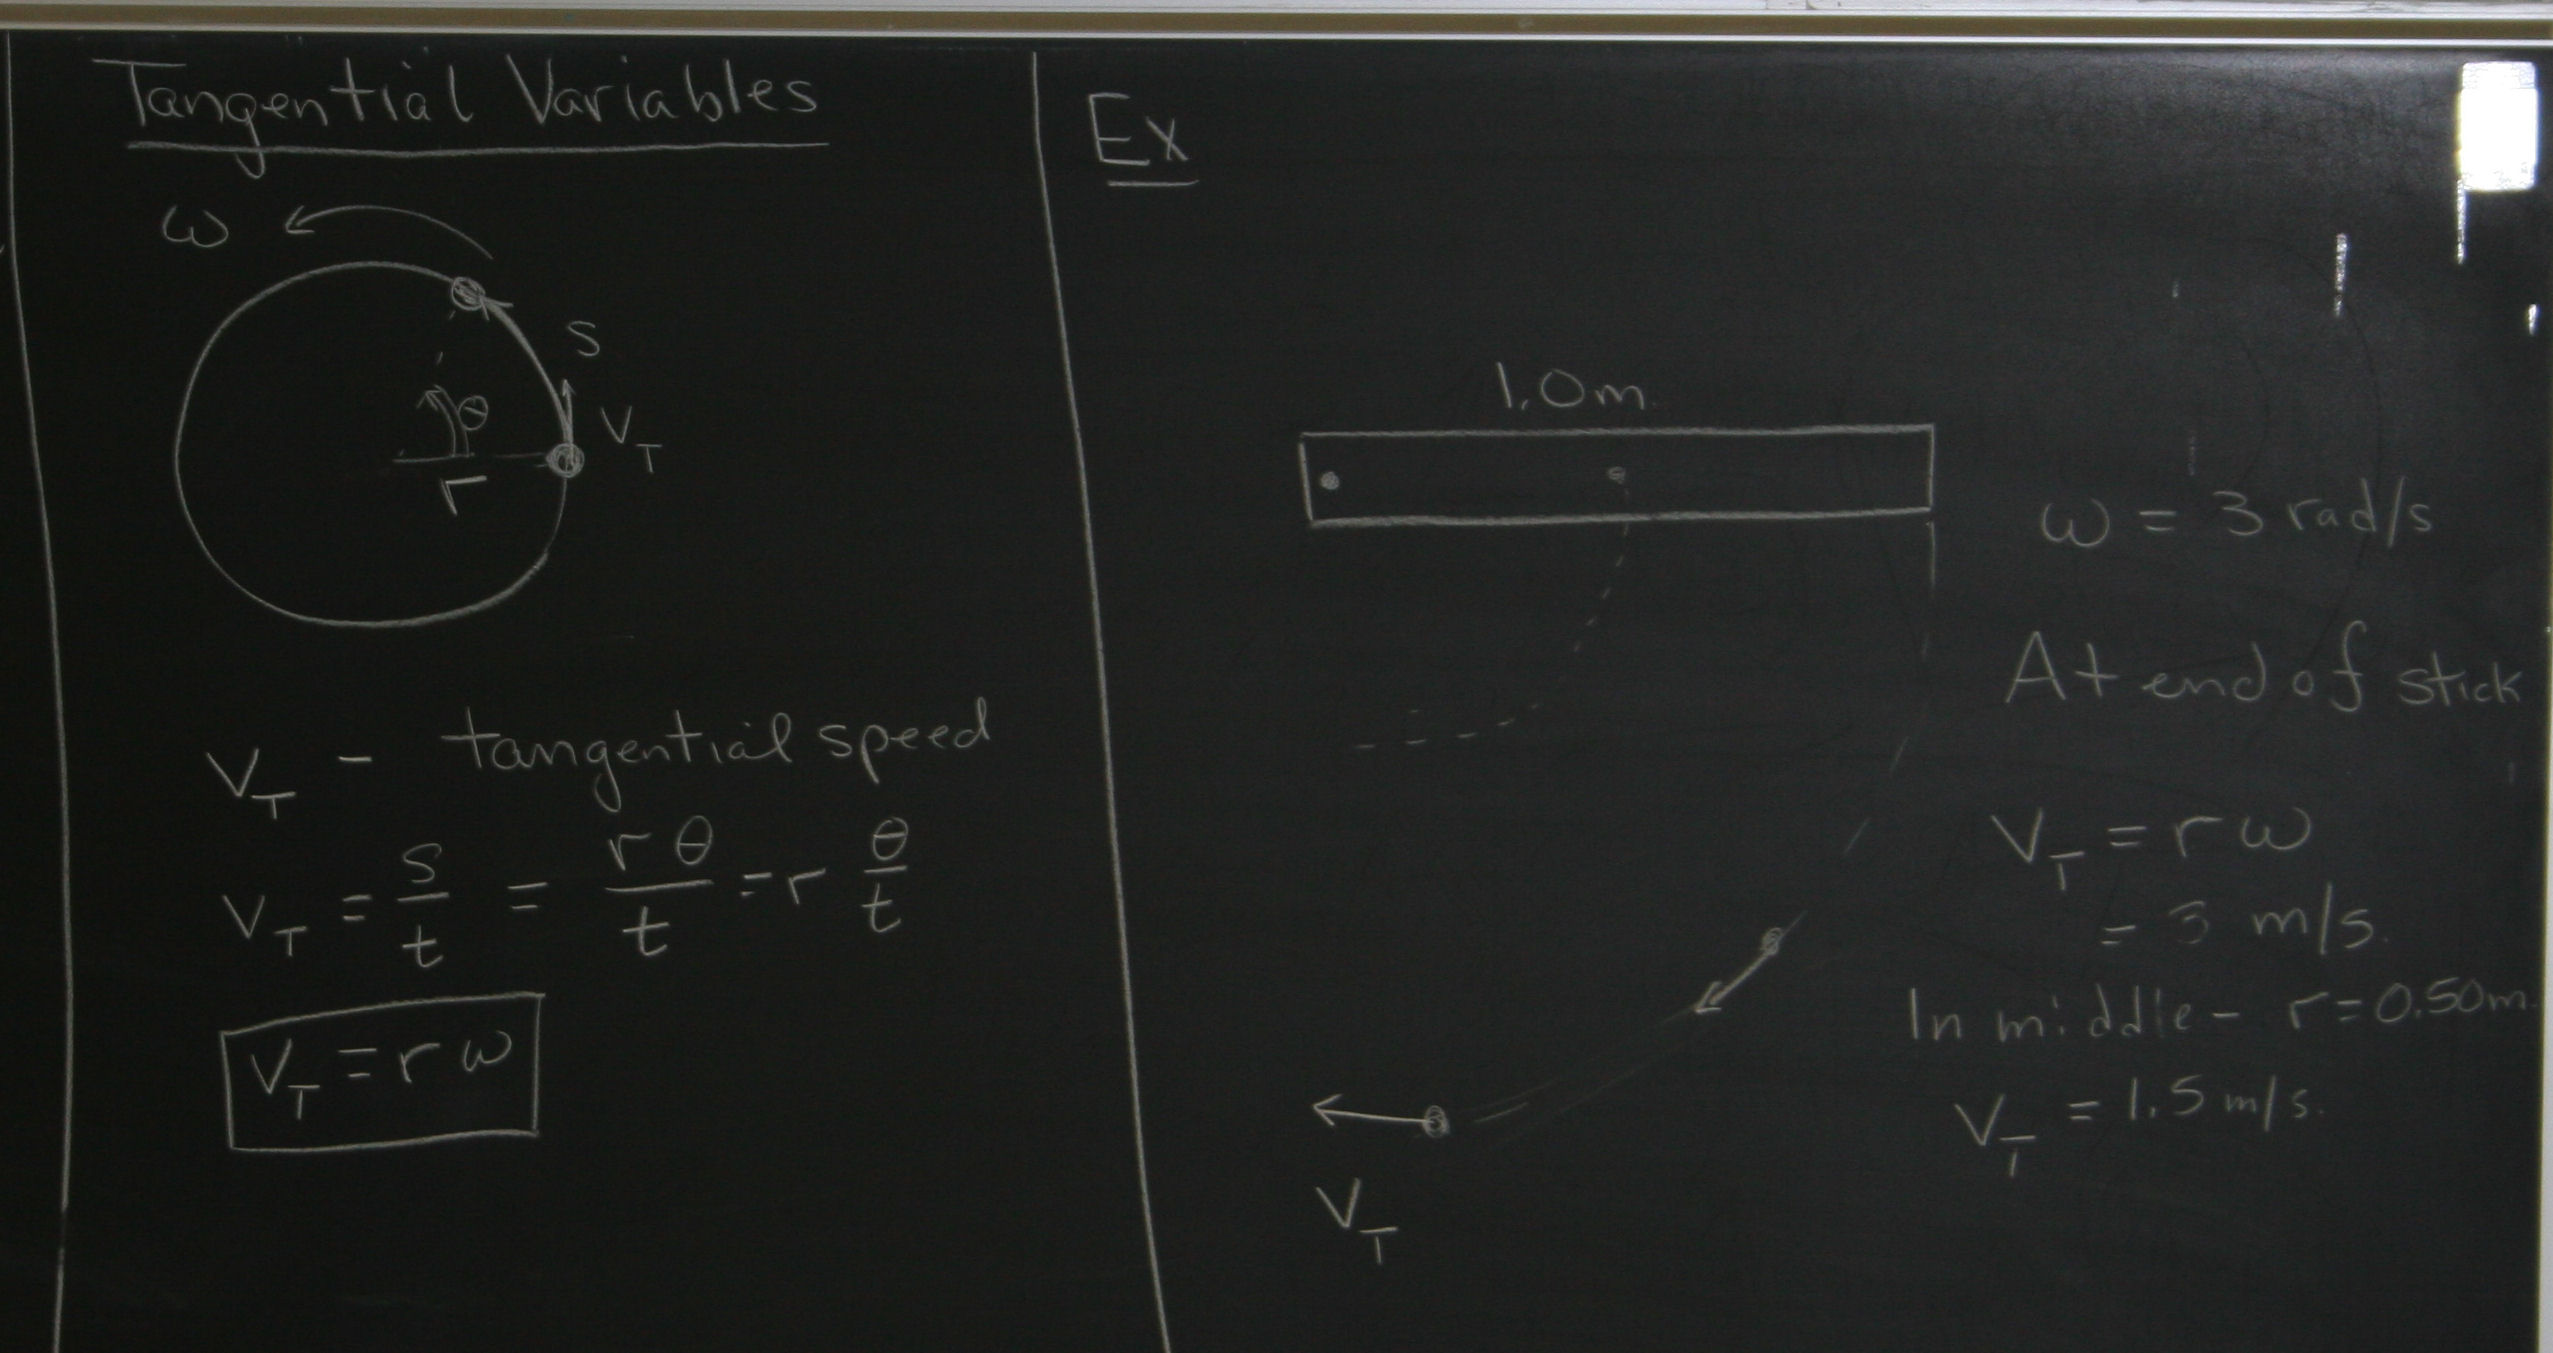 Tangential Variables
ω
S
θ
V_T
r
V_T - tangential speed
V_T = s/t = rθ/t = r θ/t
V_T = r ω
Ex
1.0m.
ω = 3 rad/s
At end of stick
V_T = r ω
= 3 m/s.
In middle - r = 0.50m.
V_T = 1.5 m/s.
V_T